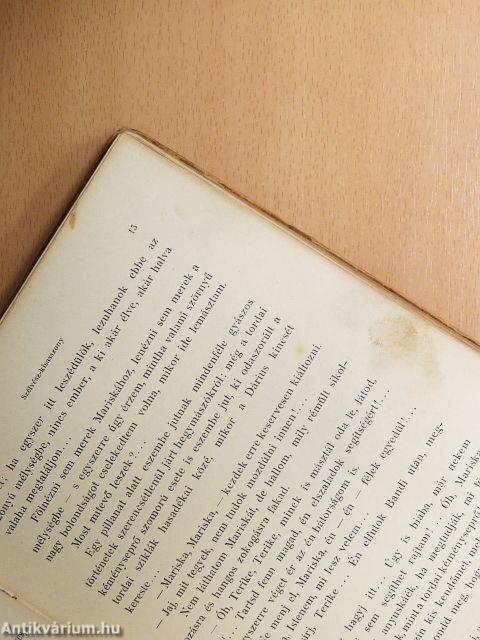 Színész-kisasszony
15
ha egyszer itt leszédülök, lezuhanok ebbe az
mélységbe, nincs ember, a ki akár élve, akár halva
valaha megtaláljon...
Fölnézni sem merek Mariskához, lenézni sem merek a
mélységbe — s egyszerre úgy érzem, mintha valami szörnyű
nagy bolondságot cselekedtem volna, mikor ide lemásztam.
Most mitévő leszek?...
Egy pillanat alatt eszembe jutnak mindenféle gyászos
történetek szerencsétlenül járt hegymászókról; még a tordai
kéményseprő szomorú esete is eszembe jut, ki odaszorult a
tordai sziklák hasadékai közé, mikor a Dárius kincsét
kereste...
— Mariska, Mariska, — kezdek erre keservesen kiáltozni.
— Jaj, mit tegyek, nem tudok mozdulni innen!...
Nem láthatom, Mariskát, de hallom, mily rémült sikol-
tozásra és hangos zokogásra fakad.
— Óh, Terike, Terike, minek is másztál oda le, látod,
Tartsd fenn magad, én elszaladok segítségért!...
egyszerre véget ér az én bátorságom is.
Ne menj el, Mariska, én — én — félek egyedül...
Istenem, mi lesz velem...
Terike... Én elfutok Bandi után, meg-
hagyj itt... Úgy is hiába, már nekem
sem segíthet rajtam!... Óh, Mariska
anyuskáék, ha megtudják, mi
mint a tordai kéményseprő
kis kendőmet,
add meg, hog
Antikvárium.hu